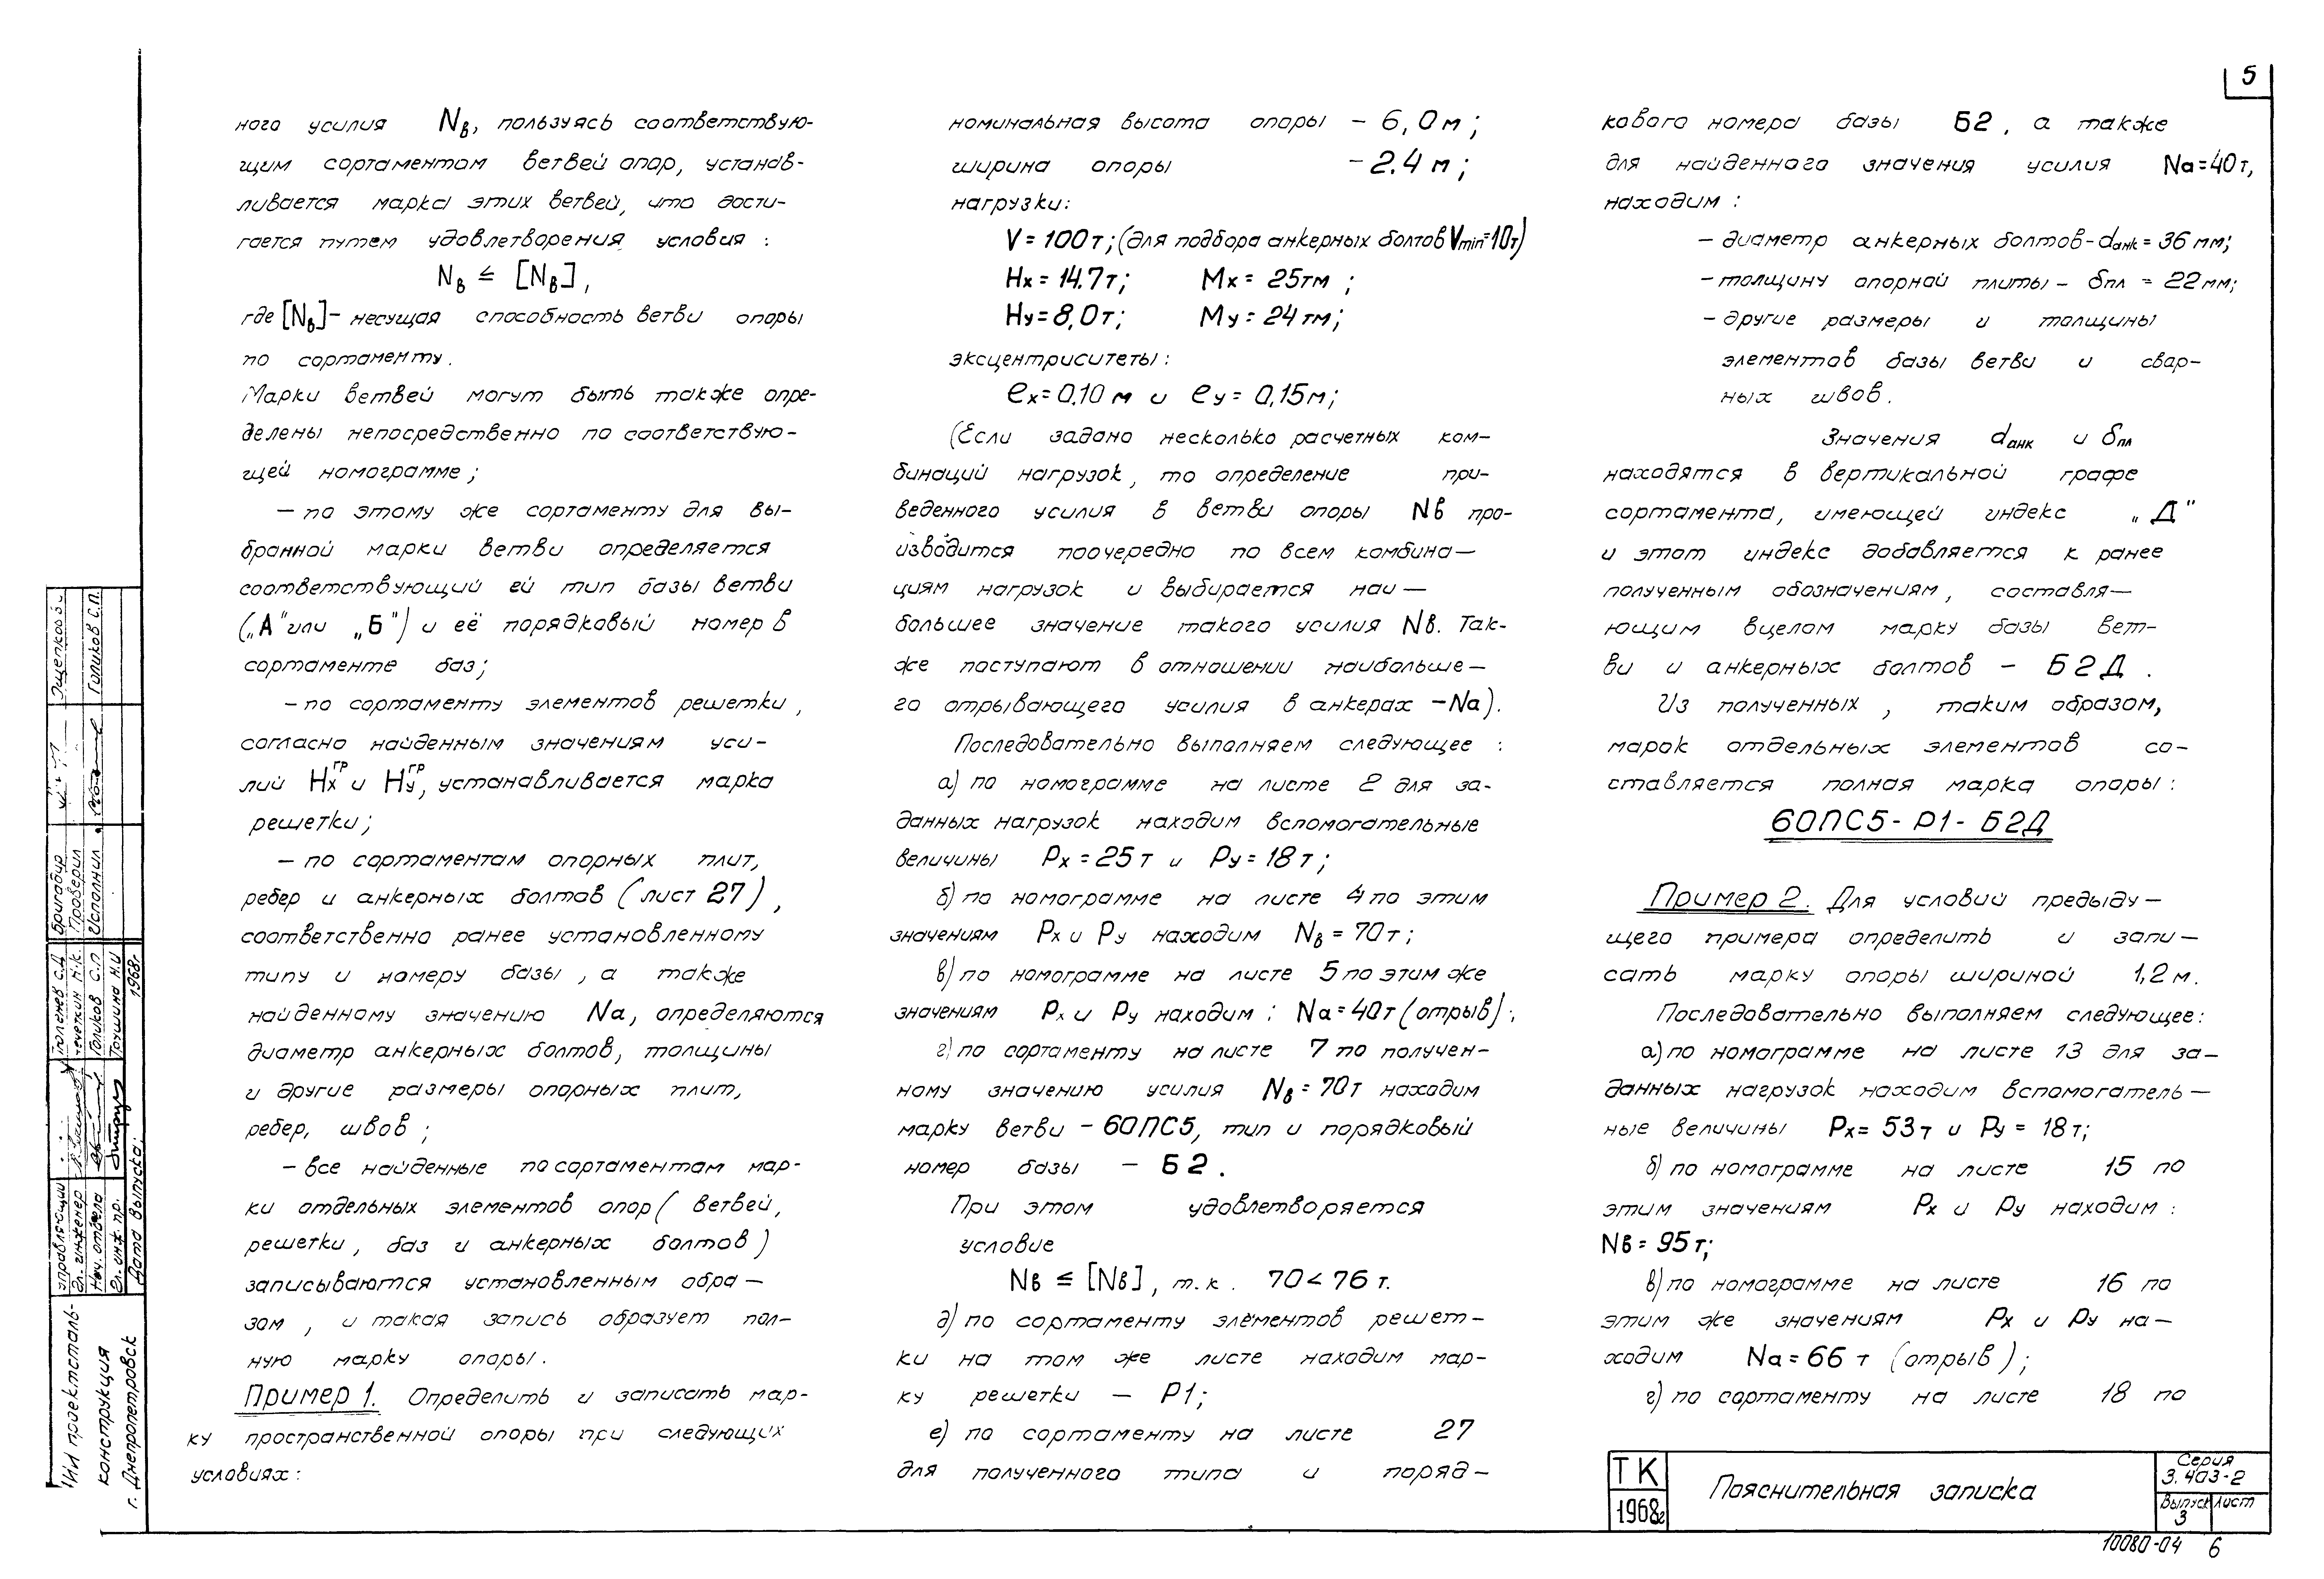 5
ного усилия Nв, пользуясь соответствую-
щим сортаментом ветвей опор, устанав-
ливается марка этих ветвей, что дости-
гается путем удовлетворения условия :
Nв ≤ [Nв],
где [Nв]- несущая способность ветви опоры
по сортаменту.
Марки ветвей могут быть также опре-
делены непосредственно по соответствую-
щей номограмме;
- по этому же сортаменту для вы-
бранной марки ветви определяется
соответствующий ей тип базы ветви
(„А" или „Б") и её порядковый номер в
сортаменте баз;
- по сортаменту элементов решетки,
согласно найденным значениям уси-
лий Hx гр и Hy гр, устанавливается марка
решетки;
- по сортаментам опорных плит,
ребер и анкерных болтов (лист 27),
соответственно ранее установленному
типу и номеру базы, а также
найденному значению Nа, определяются
диаметр анкерных болтов, толщины
и другие размеры опорных плит,
ребер, швов;
- все найденные по сортаментам мар-
ки отдельных элементов опор (ветвей,
решетки, баз и анкерных болтов)
записываются установленным обра-
зом, и такая запись образует пол-
ную марку опоры.
Пример 1. Определить и записать мар-
ку пространственной опоры при следующих
условиях:
номинальная высота опоры - 6,0 м;
ширина опоры - 2.4 м;
нагрузки:
V = 100 т; (для подбора анкерных болтов Vmin=10т)
Hx = 14.7т; Mx = 25тм ;
Hy = 8,0т; My = 24 тм;
эксцентриситеты:
ex = 0.10 м и ey = 0,15м;
(Если задано несколько расчетных ком-
бинаций нагрузок, то определение при-
веденного усилия в ветви опоры Nв про-
изводится поочередно по всем комбина-
циям нагрузок и выбирается наи-
большее значение такого усилия Nв. Так-
же поступают в отношении наибольше-
го отрывающего усилия в анкерах - Nа).
Последовательно выполняем следующее :
а) по номограмме на листе 2 для за-
данных нагрузок находим вспомогательные
величины Px = 25 т и Py = 18 т;
б) по номограмме на листе 4 по этим
значениям Px и Py находим Nв = 70 т;
в) по номограмме на листе 5 по этим же
значениям Px и Py находим : Nа = 40т (отрыв);
г) по сортаменту на листе 7 по получен-
ному значению усилия Nв = 70т находим
марку ветви - 60ПС5, тип и порядковый
номер базы - Б2.
При этом удовлетворяется
условие
Nв ≤ [Nв], т.к. 70 < 76 т.
д) по сортаменту элементов решет-
ки на том же листе находим мар-
ку решетки - Р1;
е) по сортаменту на листе 27
для полученного типа и поряд-
кового номера базы Б2, а также
для найденного значения усилия Nа=40т,
находим:
- диаметр анкерных болтов - dанк = 36 мм;
- толщину опорной плиты - δпл = 22 мм;
- другие размеры и толщины
элементов базы ветви и свар-
ных швов.
Значения dанк и δпл
находятся в вертикальной графе
сортамента, имеющей индекс „Д"
и этот индекс добавляется к ранее
полученным обозначениям, составля-
ющим вцелом марку базы вет-
ви и анкерных болтов - Б2Д.
Из полученных, таким образом,
марок отдельных элементов со-
ставляется полная марка опоры:
60ПС5-Р1-Б2Д
Пример 2. Для условий предыду-
щего примера определить и запи-
сать марку опоры шириной 1,2 м.
Последовательно выполняем следующее:
а) по номограмме на листе 13 для за-
данных нагрузок находим вспомогатель-
ные величины Px = 53т и Py = 18т;
б) по номограмме на листе 15 по
этим значениям Px и Py находим :
Nв = 95т;
в) по номограмме на листе 16 по
этим же значениям Px и Py на-
ходим Nа = 66 т (отрыв);
г) по сортаменту на листе 18 по
ТК
1968г
Пояснительная записка
Серия
3.403-2
Выпуск Лист
3
10080-04 6
Бригадир
Проверил
Исполнил
Голиков С.П.
Голиков С.П.
1968г
Управляющий
Гл. инженер
Нач. отдела
Гл. инж. пр.
Дата выпуска:
проектсталь-
конструкция
г. Днепропетровск